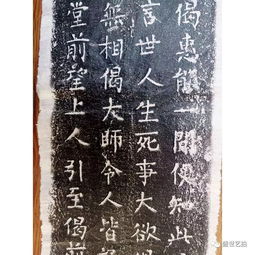 偈惠能一聞便知此
言世人生死事大欲
無相偈大師令人皆
堂前望上人引至偈前
盛世艺拍